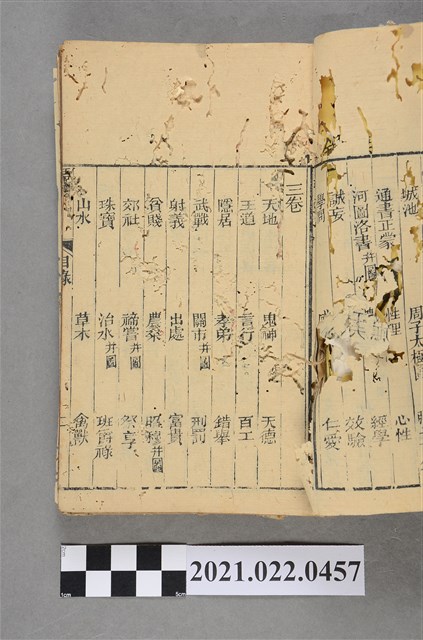 城池 周子太極 心性
通書正蒙 性理 經學
河圖洛書并圖 效驗
誠妄 仁愛
三卷
天地 鬼神 天德
王道 言行 百工
隱居 孝弟 錯舉
武戰 關市并圖 刑罰
射義 出處 富貴
貧賤 農桑 昭穆并圖
郊社 禘嘗并圖 祭享
珠寶 治水并圖 班爵祿
山水 草木 禽獸
目錄
1cm 5cm
2021.022.0457